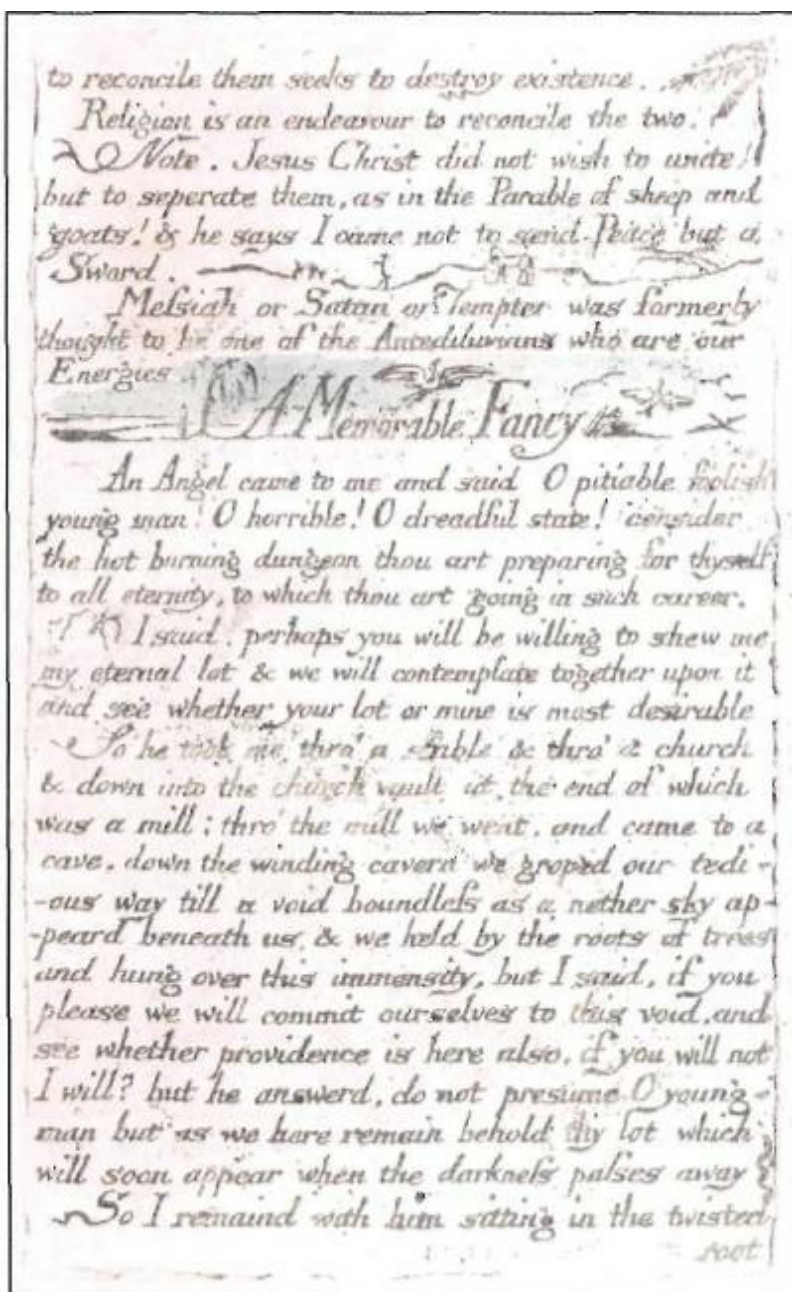 to reconcile them seeks to destroy existence.
Religion is an endeavour to reconcile the two.
Note. Jesus Christ did not wish to unite
but to seperate them, as in the Parable of sheep and
goats! & he says I came not to send Peace but a
Sword.
Meſsiah or Satan or Tempter was formerly
thought to be one of the Antediluvians who are our
Energies.
A Memorable Fancy
An Angel came to me and said O pitiable foolish
young man! O horrible! O dreadful state! consider
the hot burning dungeon thou art preparing for thyself
to all eternity, to which thou art going in such career.
I said. perhaps you will be willing to shew me
my eternal lot & we will contemplate together upon it
and see whether your lot or mine is most desirable
So he took me thro' a stable & thro' a church
& down into the church vault at the end of which
was a mill; thro' the mill we went, and came to a
cave. down the winding cavern we groped our tedi-
-ous way till a void boundleſs as a nether sky ap-
-peard beneath us, & we held by the roots of trees
and hung over this immensity, but I said, if you
please we will commit ourselves to this void, and
see whether providence is here also, if you will not
I will? but he answerd, do not presume O young-
man but as we here remain behold thy lot which
will soon appear when the darkneſs paſses away
So I remaind with him sitting in the twisted
root